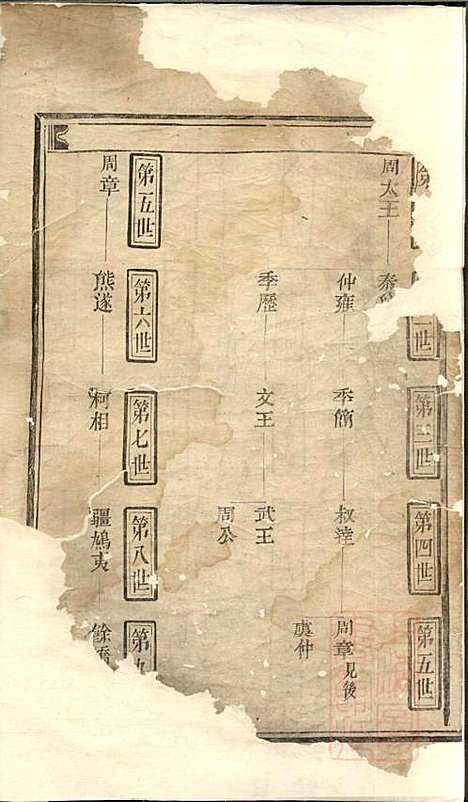 第
二世
第三世
第四世
第五世
周太王 泰
仲雍 季簡 叔達 周章見後
虞仲
季歷 文王 武王
周公
第五世
第六世
第七世
第八世
第九
周章 熊遂 柯相 疆鳩夷 餘橋